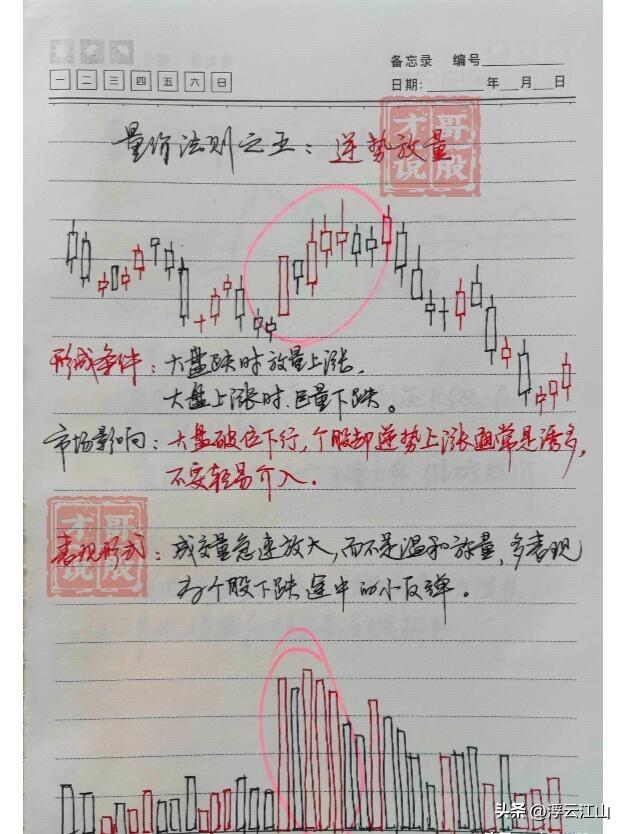 备忘录 编号
一 二 三 四 五 六 日
日期: 年 月 日
量价法则之五：逆势放量
才哥说股
形成条件：大盘跌时放量上涨，
大盘上涨时、巨量下跌。
市场影响：大盘破位下行，个股却逆势上涨通常是诱多，
不要轻易介入．
才哥说股
表现形式：成交量急速放大，而不是温和放量，多表现
为个股下跌途中的小反弹。
头条 @浮云江山